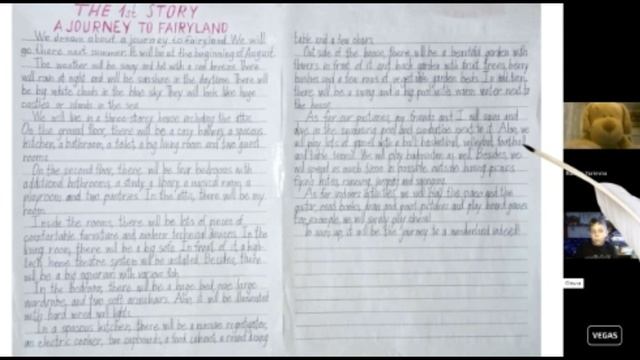 THE 1st STORY
A JOURNEY TO FAIRYLAND
We dream about a journey to Fairyland. We will
go there next summer. It will be at the beginning of August.
The weather will be sunny and hot with a cool breeze. There
will rain at night and will be sunshine in the daytime. There will
be big white clouds in the blue sky. They will look like huge
castles or islands in the sea.
We will live in a three-storey house including the attic.
On the ground floor, there will be a cosy hallway, a spacious
kitchen, a bathroom, a toilet, a big living room and two guest
rooms.
On the second floor, there will be four bedrooms with
additional bathrooms, a study, a library, a musical room, a
playroom and two pantries. In the attic, there will be my
room.
Inside the rooms, there will be lots of pieces of
comfortable furniture and modern technical devices. In the
living room, there will be a big sofa. In front of it a high-
tech home theatre system will be installed. Besides, there
will be a big aquarium with various fish.
In the bedroom, there will be a huge bed, one large
wardrobe, and two soft armchairs. Also, it will be illuminated
with wall lights.
In a spacious kitchen, there will be a massive refrigerator,
an electric cooker, two cupboards, a food cabinet, a round dining
table and a few chairs.
Outside of the house, there will be a beautiful garden with
flowers in front of it and back garden with fruit trees, berry
bushes and a few rows of vegetable garden beds. In addition,
there will be a swing and a big pool with warm water next to
the house.
As for our pastimes, my friends and I will swim and
dive in the swimming pool and sunbathe next to it. Also, we
will play lots of games with a ball: basketball, volleyball, football
and table tennis. We will play badminton as well. Besides, we
will spend as much time as possible outside having picnics,
flying kites, running, jumping and
As for indoors activities, we will play the piano and the
guitar, read books, draw and paint pictures and play board games.
For example, we will surely play chess!
To sum up, it will be the journey to a wonderland indeed!
VEGAS